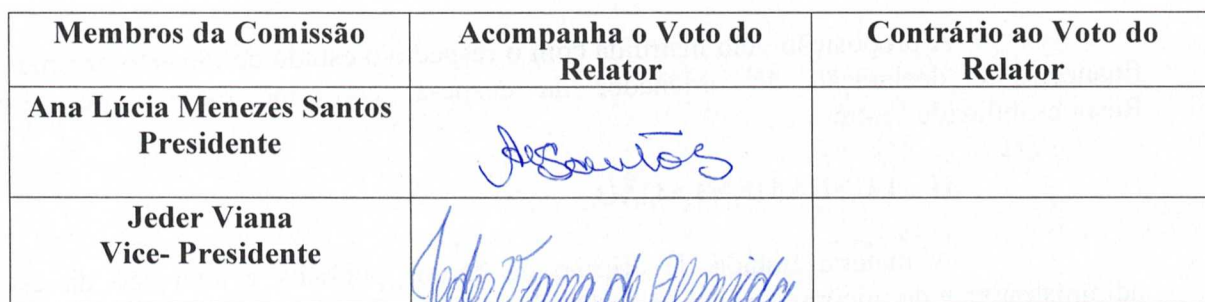 Membros da Comissão
Acompanha o Voto do
Relator
Contrário ao Voto do
Relator
Ana Lúcia Menezes Santos
Presidente
Jeder Viana
Vice- Presidente
Jeder Viana de Almeida